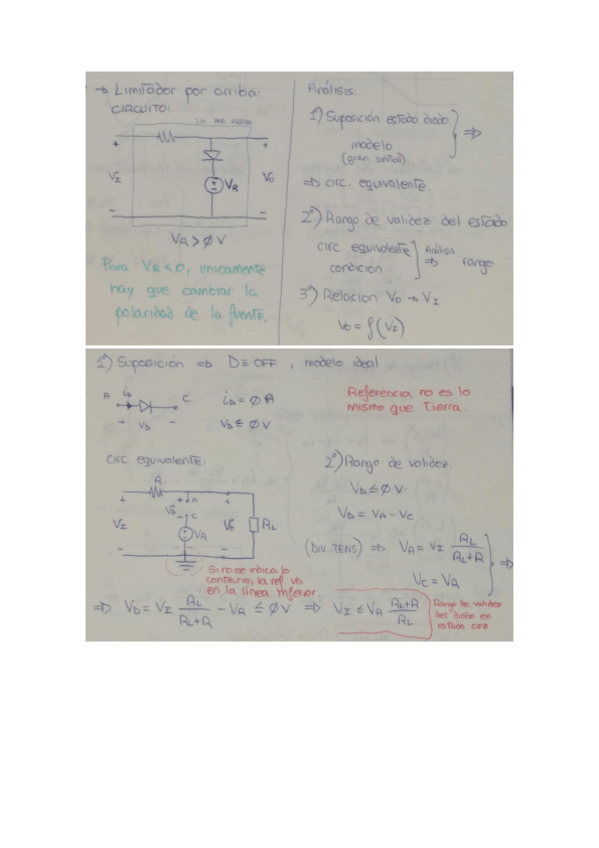 → Limitador por arriba:
CIRCUITO:
LIM POR ARRIBA
+ +
VI VR VO
- -
VR > ØV
Para VR < 0, unicamente
hay que cambiar la
polaridad de la fuente.
Análisis:
1º) Suposición estado diodo. } ⇒
modelo
(gran señal)
⇒ circ. equivalente.
2º) Rango de validez del estado
circ. equivalente } Análisis ⇒ rango
condición
3º) Relacion VO → VI
VO = f(VI)
1º) Suposición ⇒ D ≡ OFF, modelo ideal
A iD C
+ VD -
iD = Ø A
VD ≤ Ø V
Referencia no es lo
mismo que Tierra.
circ. equivalente:
R
+ + A +
VI VD VO RL
- C
VR
- -
Si no se indica lo
contrario, la ref. va
en la línea inferior.
2º) Rango de validez.
VD ≤ Ø V
VD = VA - VC
(DIV. TENS) ⇒ VA = VI RL / (RL + R) } ⇒
VC = VR
⇒ VD = VI RL / (RL + R) - VR ≤ Ø V ⇒ VI ≤ VR (RL + R) / RL
Rango de validez
del diodo en
estado OFF